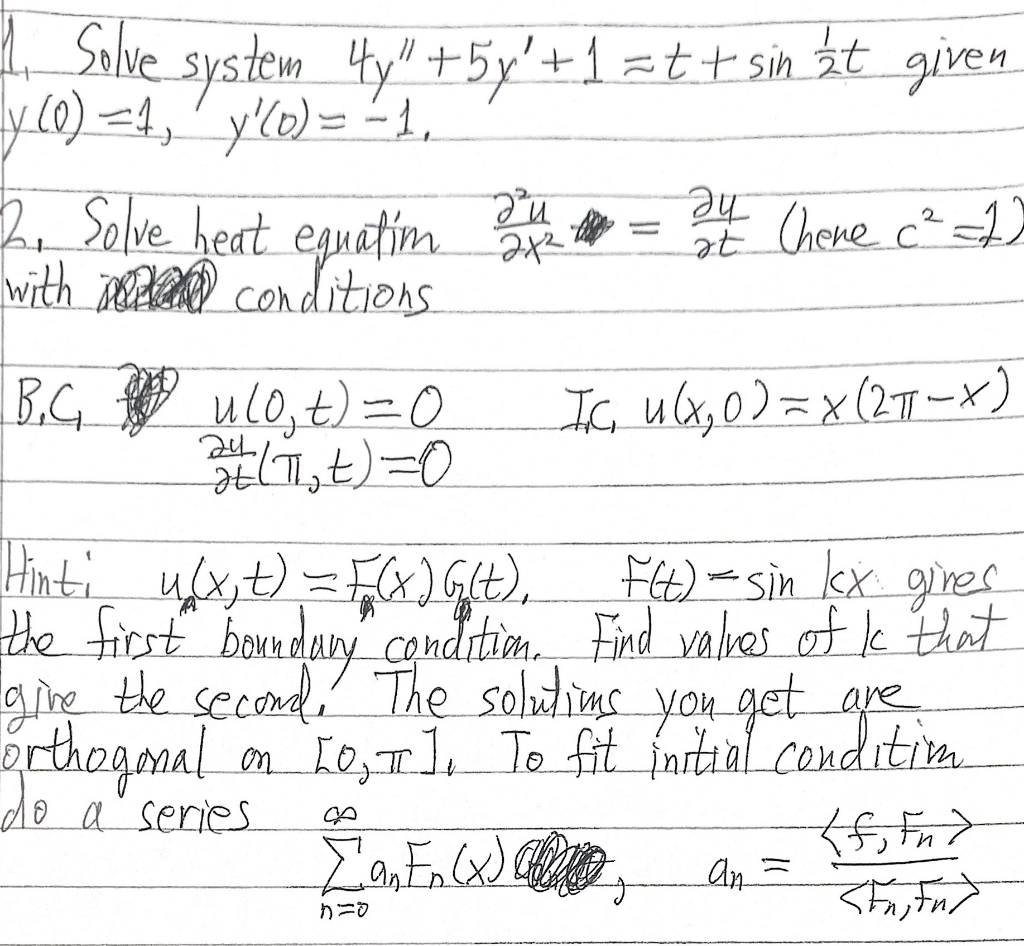 1. Solve system 4y'' + 5y' + 1 = t + sin ½t given
y(0) = 1, y'(0) = -1.
2. Solve heat equation ∂²u/∂x² = ∂u/∂t (here c² = 1)
with conditions
B.C. u(0,t) = 0 I.C. u(x,0) = x(2π-x)
∂u/∂t(π,t) = 0
Hint: u(x,t) = F(x)G(t). F(t) = sin kx gives
the first boundary condition. Find values of k that
give the second. The solutions you get are
orthogonal on [0,π]. To fit initial condition
do a series
∑_{n=0}^{∞} aₙFₙ(x), aₙ = <f,Fₙ>/<Fₙ,Fₙ>